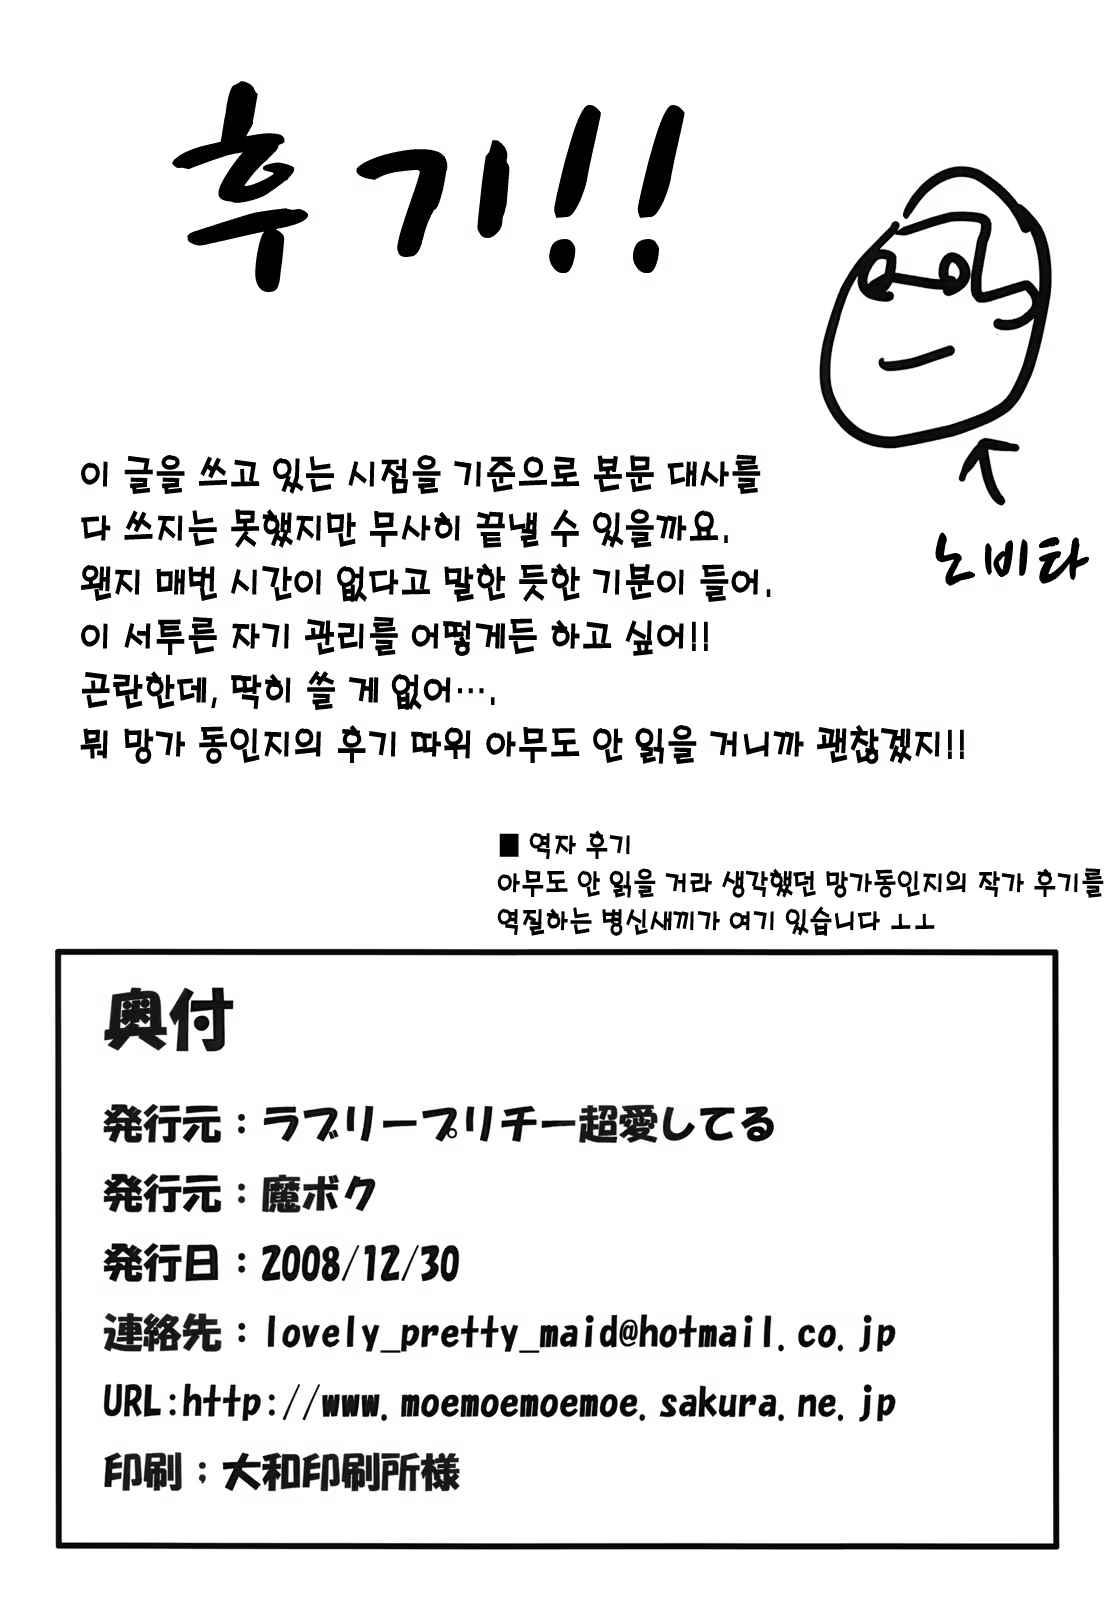 후기!!
노비타
이 글을 쓰고 있는 시점을 기준으로 본문 대사를
다 쓰지는 못했지만 무사히 끝낼 수 있을까요.
왠지 매번 시간이 없다고 말한 듯한 기분이 들어.
이 서투른 자기 관리를 어떻게든 하고 싶어!!
곤란한데, 딱히 쓸 게 없어….
뭐 망가 동인지의 후기 따위 아무도 안 읽을 거니까 괜찮겠지!!
■ 역자 후기
아무도 안 읽을 거라 생각했던 망가동인지의 작가 후기를
역질하는 병신새끼가 여기 있습니다 ㅗㅗ
奥付
発行元：ラブリープリチー超愛してる
発行元：魔ボク
発行日：2008/12/30
連絡先：lovely_pretty_maid@hotmail.co.jp
URL:http://www.moemoemoemoe.sakura.ne.jp
印刷：大和印刷所様